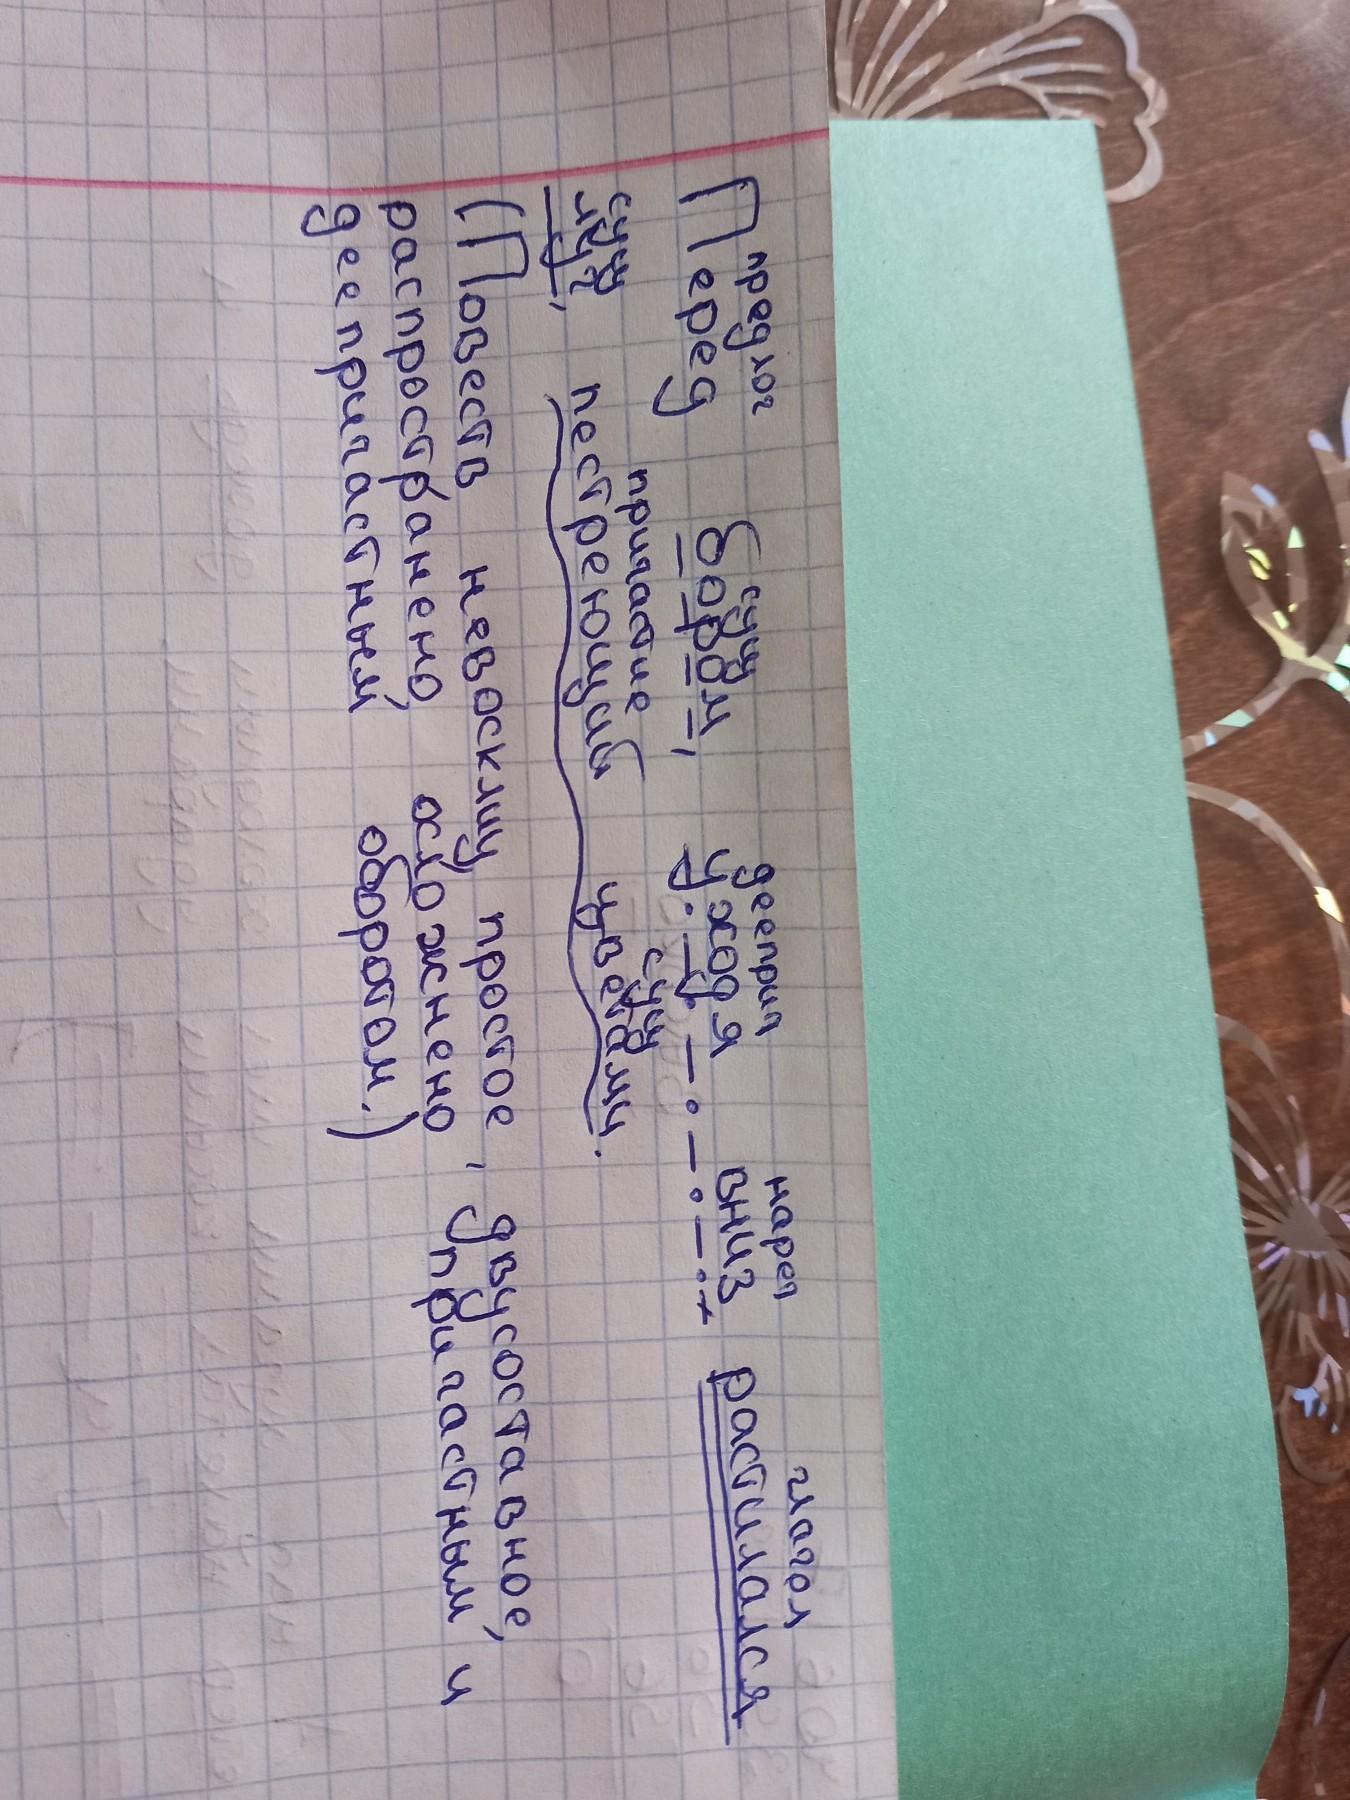 предлог сущ дееприч нареч глагол
Перед бором, уходя вниз расстилался
сущ причастие сущ
луг, пестреющий цветами.
(Повеств невосклиц простое, двусоставное,
распространено осложнено причастным и
деепричастным оборотом.)